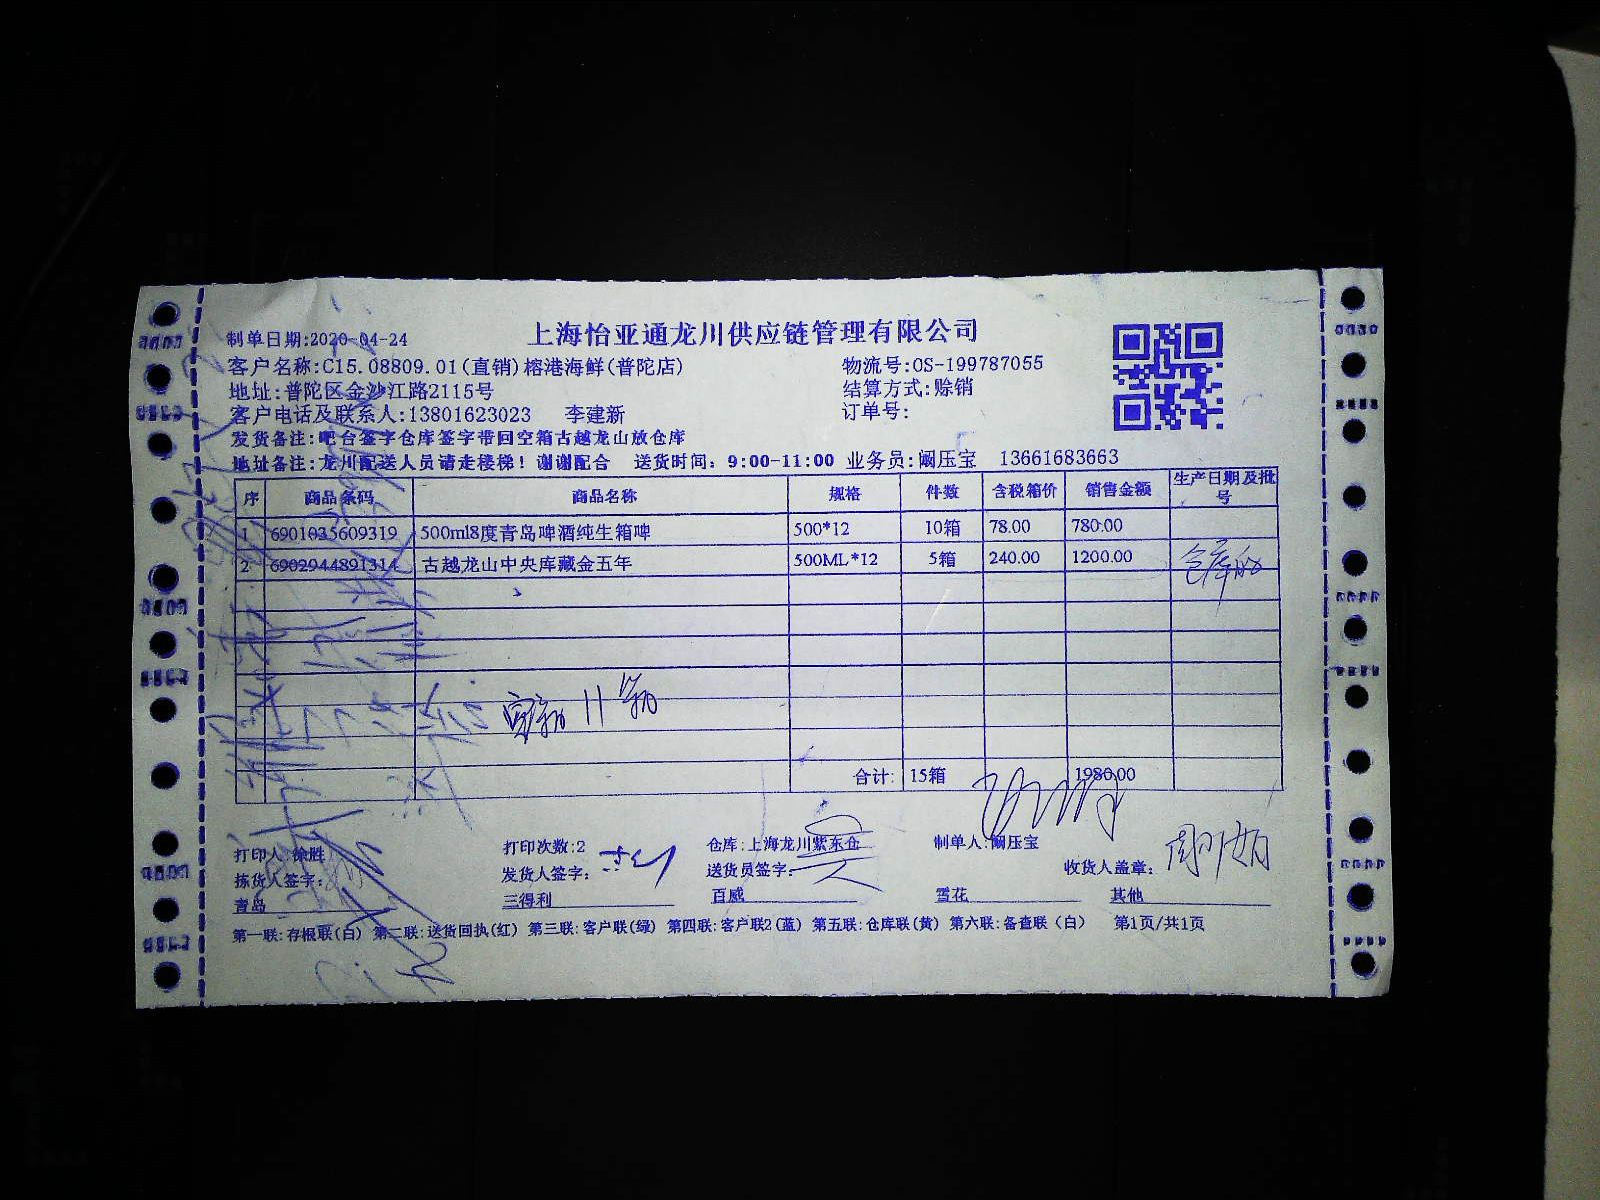 上海怡亚通龙川供应链管理有限公司
制单日期:2020-04-24
客户名称:C15.08809.01(直销)榕港海鲜(普陀店) 物流号:OS-199787055
地址:普陀区金沙江路2115号 结算方式:赊销
客户电话及联系人:13801623023 李建新 订单号:
发货备注:吧台签字仓库签字带回空箱古越龙山放仓库
地址备注:龙川配送人员请走楼梯！谢谢配合 送货时间：9:00-11:00 业务员:阚压宝 13661683663
序 商品条码 商品名称 规格 件数 含税箱价 销售金额 生产日期及批号
1 6901035609319 500ml8度青岛啤酒纯生箱啤 500*12 10箱 78.00 780.00
2 6902944891314 古越龙山中央库藏金五年 500ML*12 5箱 240.00 1200.00
合计: 15箱 1980.00
打印人:徐胜 打印次数:2 仓库:上海龙川紫东仓 制单人:阚压宝
拣货人签字: 发货人签字: 送货员签字: 收货人盖章:
青岛 三得利 百威 雪花 其他
第一联:存根联(白) 第二联:送货回执(红) 第三联:客户联(绿) 第四联:客户联2(蓝) 第五联:仓库联(黄) 第六联:备查联（白） 第1页/共1页